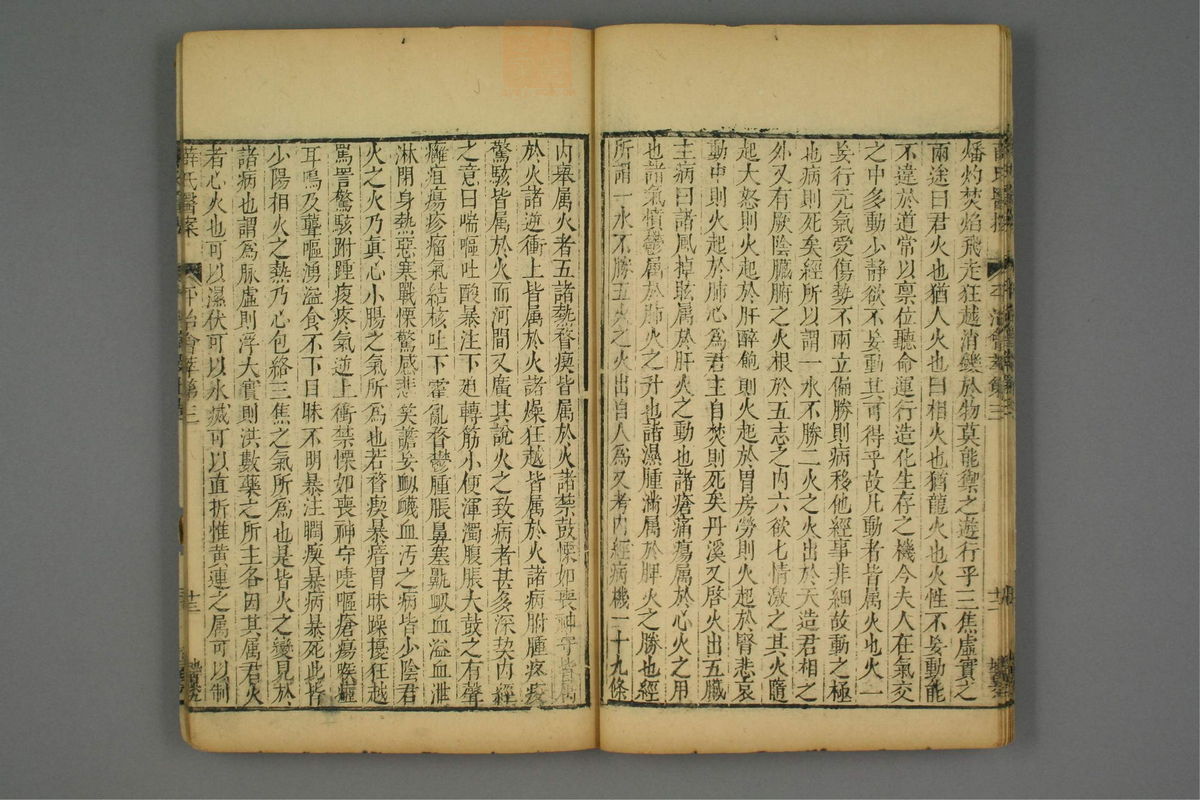 燔灼焚焰飛走狂越消鑠於物莫能禦之遊行乎三焦虛實之
兩途曰君火也猶人火也曰相火也猶龍火也火性不妄動能
不違於道常以禀位聽命運行造化生存之機今夫人在氣交
之中多動少静欲不妄動其可得乎故凡動者皆属火也火一
妄行元氣受傷勢不兩立偏勝則病移他經事非細故動之極
也病則死矣經所以謂一水不勝二火之火出於天造君相之
外又有厥陰臟腑之火根於五志之内六欲七情激之其火隨
起大怒則火起於肝醉飽則火起於胃房勞則火起於腎悲哀
動中則火起於肺心為君主自焚則死矣丹溪又啓火出五臟
主病曰諸風掉眩属於肝火之動也諸瘡痛瘍属於心火之用
也諸氣憤鬱属於肺火之升也諸濕腫滿属於脾火之勝也經
所謂一水不勝五火之火出自人為又考内經病機一十九條
内舉属火者五諸熱瞀瘈皆属於火諸禁鼓慄如喪神守皆属
於火諸逆衝上皆属於火諸燥狂越皆属於火諸病胕腫疼痠
驚駭皆属於火而河間又廣其說火之致病者甚多深契内經
之意曰喘嘔吐酸暴注下廹轉筋小便渾濁腹脹大鼓之有聲
癰疽瘍疹瘤氣結核吐下霍亂瞀鬱腫脹鼻塞鼽衂血溢血泄
淋閉身熱惡寒戰慄驚惑悲笑譫妄衂衊血汚之病皆少陰君
火之火乃真心小腸之氣所為也若瞀瘈暴瘖冒昧躁擾狂越
罵詈驚駭胕腫痠疼氣逆上衝禁慄如喪神守嚏嘔瘡瘍喉痺
耳鳴及聾嘔湧溢食不下目昧不明暴注瞤瘈暴病暴死此皆
少陽相火之熱乃心包絡三焦之氣所為也是皆火之變見於
諸病也謂為脉虛則浮大實則洪數藥之所主各因其属君火
者心火也可以濕伏可以水滅可以直折惟黄連之属可以制
薛氏醫案 平治會萃第三 廿三